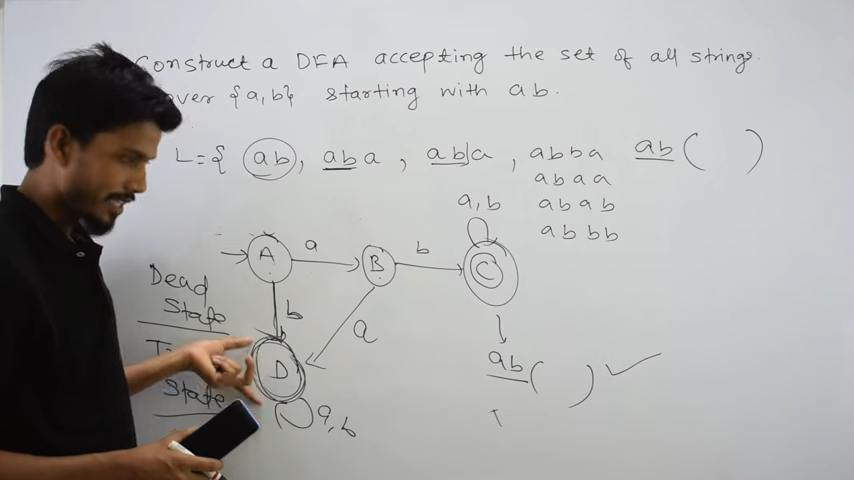 Construct a DFA accepting the set of all strings.
over {a,b} starting with ab.
L={ ab, aba, ab/a, abba ab( )
abaa
abab
abbb
a,b
A a B b C
Dead
State
b
a
D
State
a,b
ab( ) ✓